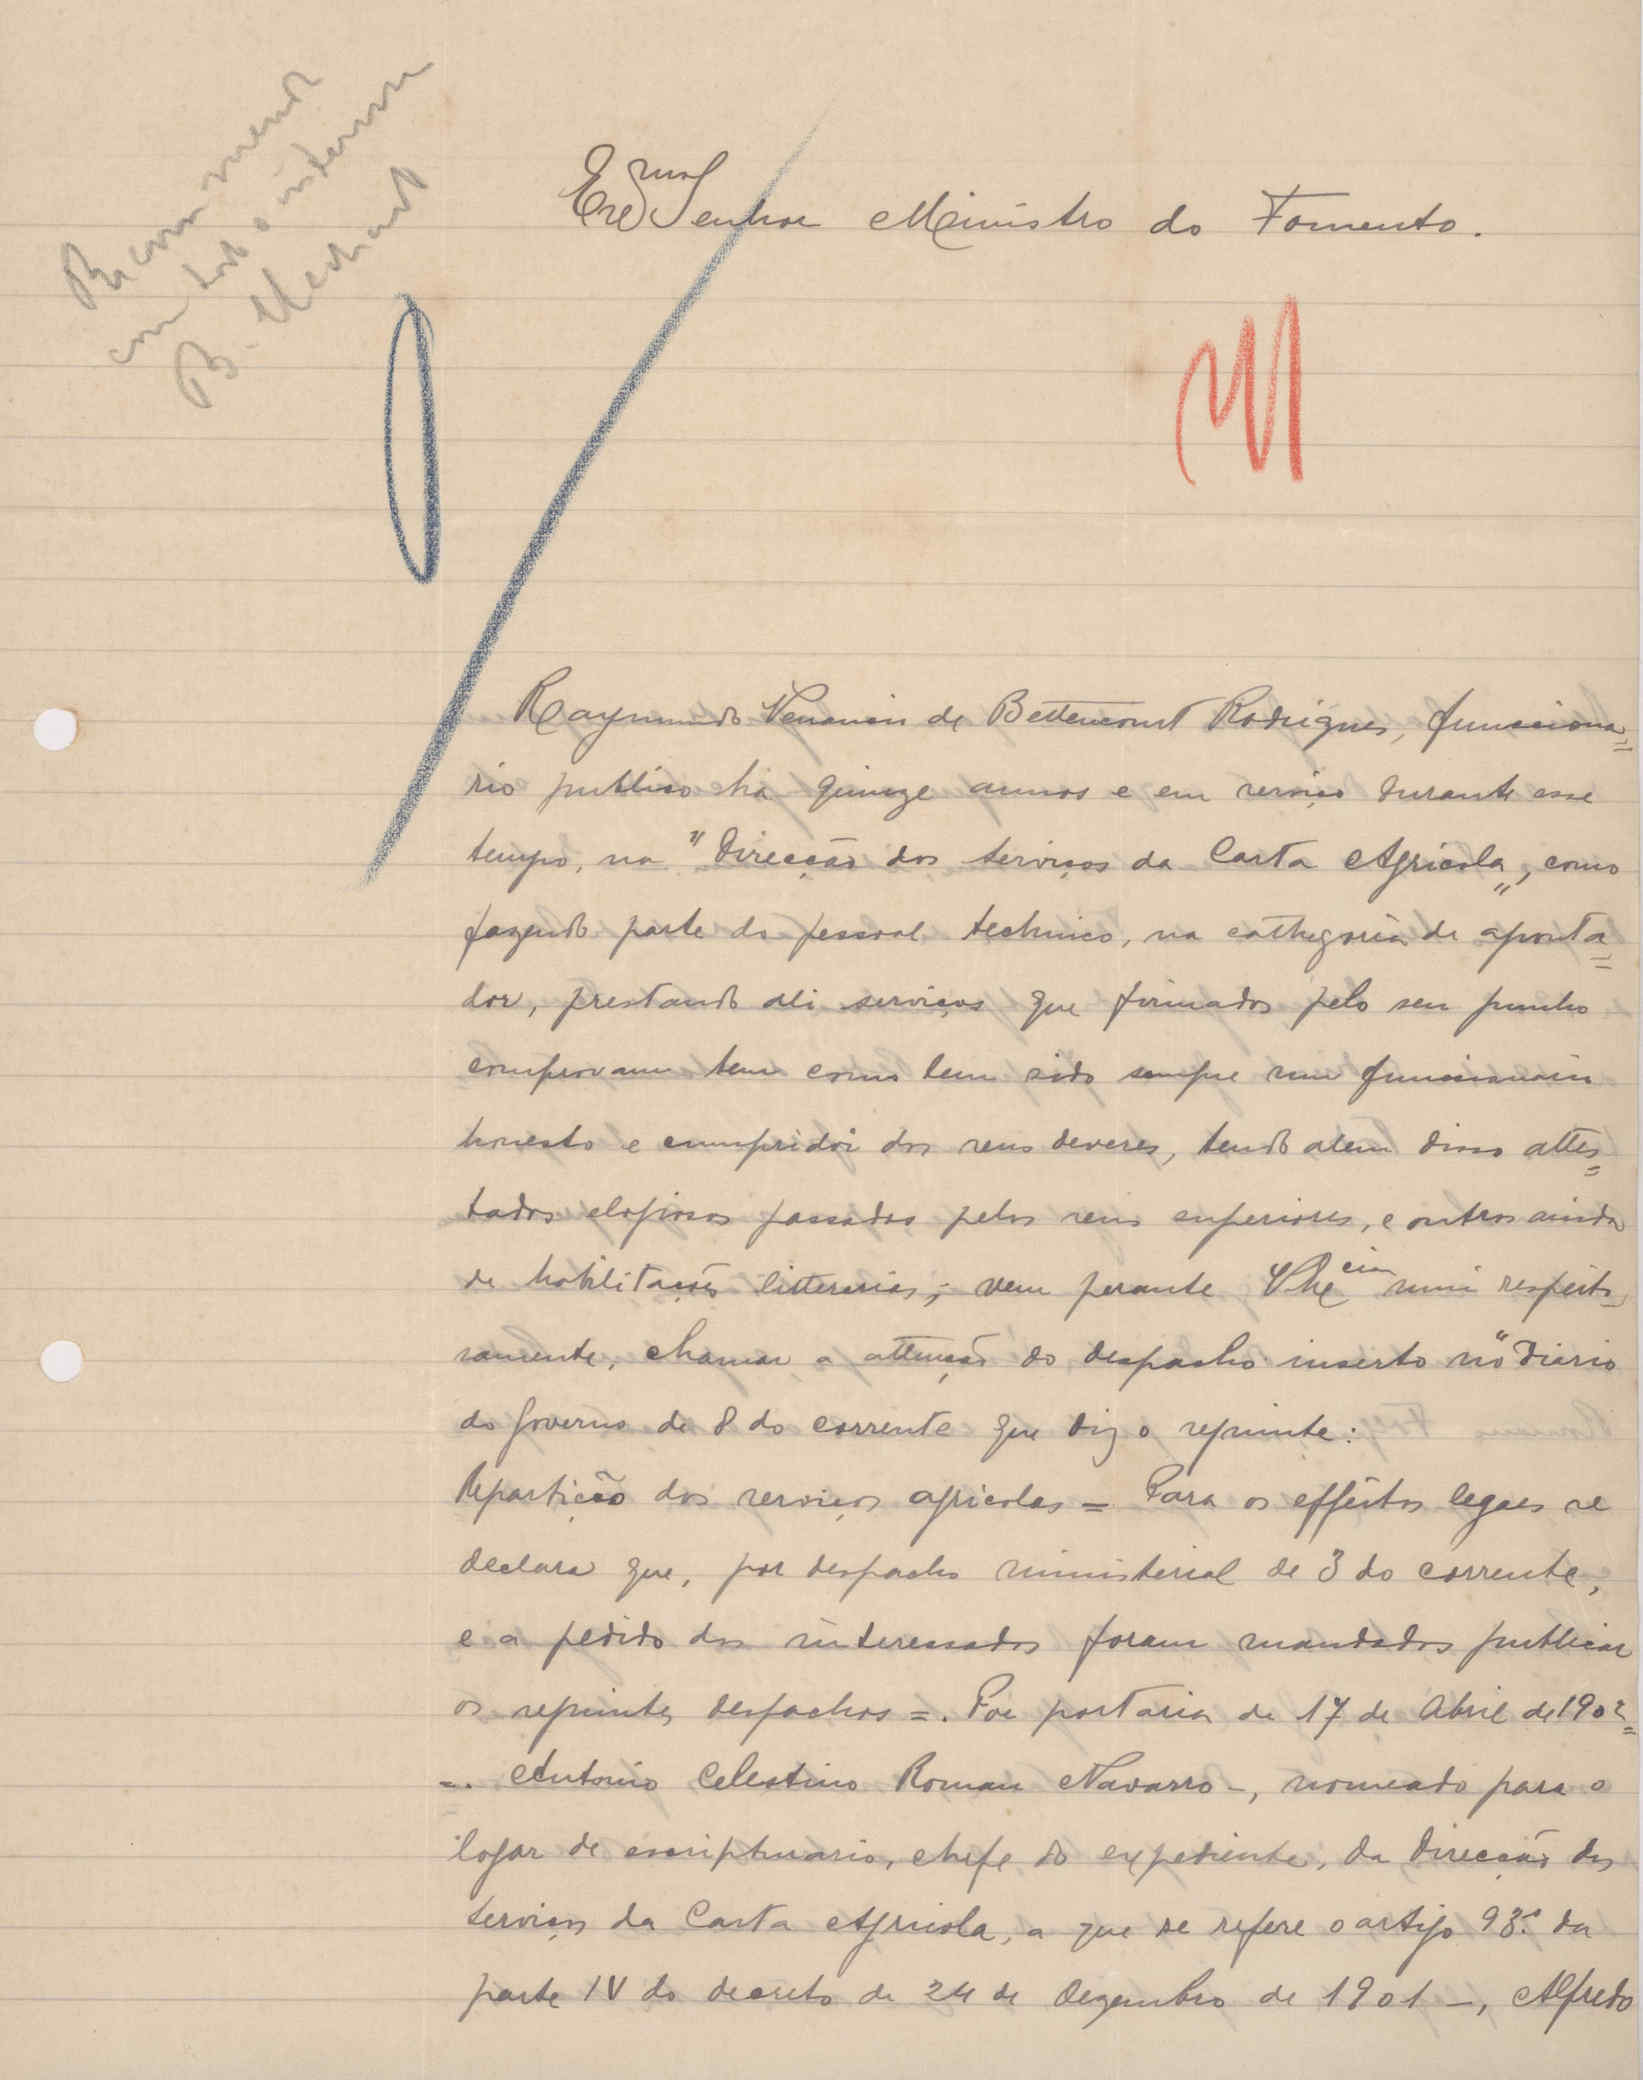 Recommendo
com todo o interesse
B. Machado
Exmo Senhor Ministro do Fomento.
Raymundo Venancio de Bettencourt Rodrigues, funcciona=
rio publico ha quinze annos e em serviço durante esse
tempo, na "Direcção dos serviços da Carta Agricola", como
fazendo parte do pessoal technico, na cathegoria de aponta=
dor, prestando ali serviços que firmados pelo seu punho
comprovam bem como tem sido sempre um funccionario
honesto e cumpridor dos seus deveres, tendo alem disso attes=
tados elogiosos passados pelos seus superiores, e outros ainda
de habilitações litterarias; vem perante V. Excia mui respeito=
samente, chamar a attenção do despacho inserto no "Diario
do Governo de 8 do corrente que diz o seguinte:
Repartição dos serviços agricolas = Para os effeitos legaes se
declara que, por despacho ministerial de 3 do corrente,
e a pedido dos interessados foram mandados publicar
os seguintes despachos =. Por portaria de 17 de Abril de 1902=
=. Antonio Celestino Roman Navarro -, nomeado para o
logar de escripturario, chefe do expediente, da Direcção dos
serviços da Carta Agricola, a que se refere o artigo 93.º da
parte IV do decreto de 24 de Dezembro de 1901 -, Alfredo